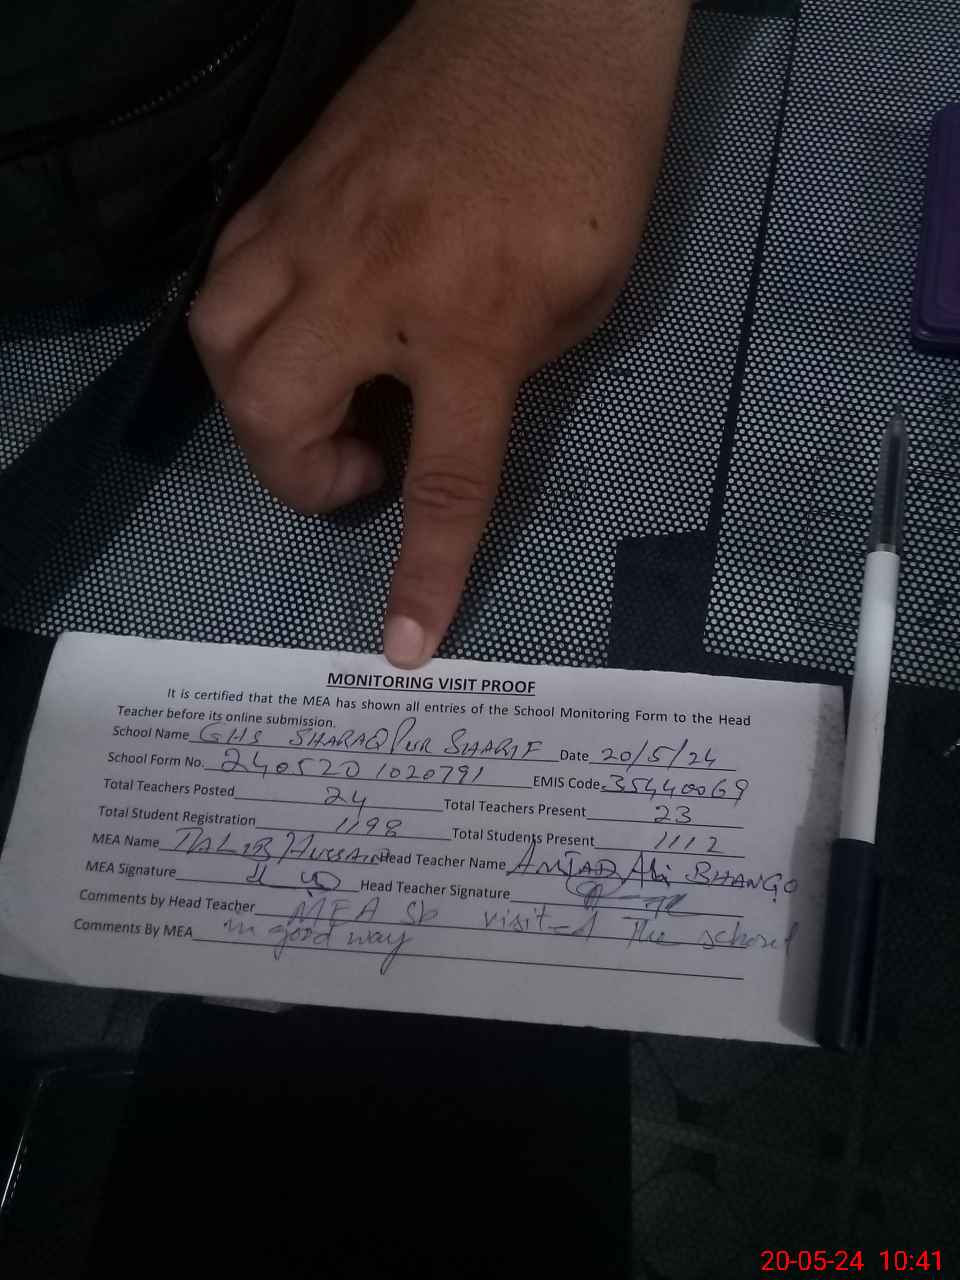 MONITORING VISIT PROOF
It is certified that the MEA has shown all entries of the School Monitoring Form to the Head
Teacher before its online submission.
School Name GHS SHARAQPUR SHARIF Date 20/5/24
School Form No. 2405201020791 EMIS Code 35440069
Total Teachers Posted 24 Total Teachers Present 23
Total Student Registration 1198 Total Students Present 1112
MEA Name TALIB HUSSAIN Head Teacher Name AMJAD Ali BHANGO
MEA Signature Head Teacher Signature
Comments by Head Teacher MEA Sb visited The school
Comments By MEA in good way
20-05-24 10:41